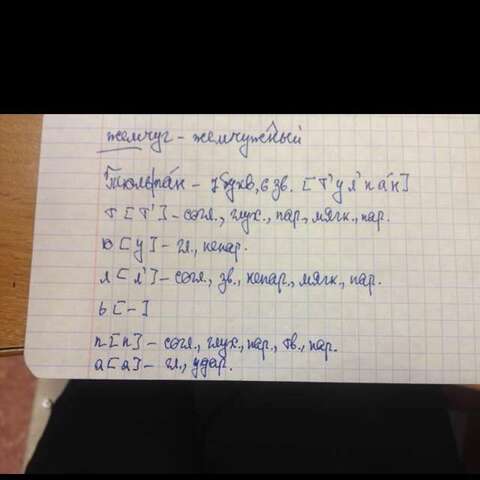 жемчуг - жемчужный
Тюльпа́н - 7 букв, 6 зв. [т'ул'па́н]
т [т'] - согл., глух., пар., мягк., пар.
ю [у] - гл., непар.
л [л'] - согл., зв., непар., мягк., пар.
ь [-]
п [п] - согл., глух., пар., тв., пар.
а [а] - гл., удар.